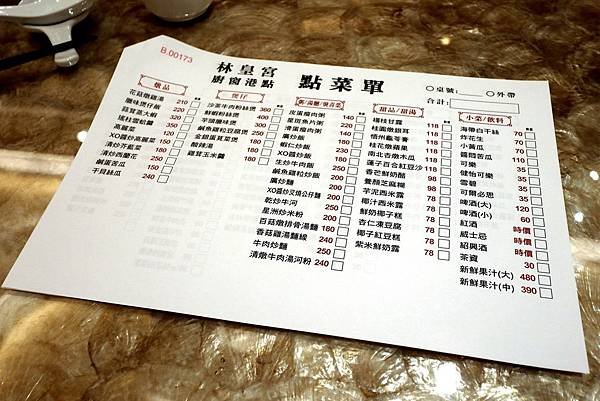 B.00173
林皇宮
廚窗港點
點菜單
○桌號:
○外帶
合計:
燉品
花菇燉雞湯 210
臘味煲仔飯 220
180
200
高麗菜 180
XO醬炒高麗菜 150
清炒芥藍菜 200
清炒西蘭花 250
鹹蛋苦瓜 150
干貝絲瓜 240
煲仔
沙茶牛肉粉絲煲 360
鮮蝦粉絲煲 400
芋頭臘味煲
鹹魚雞粒豆腐煲
金銀蛋莧菜煲
酸辣湯
雞茸玉米羹 180
皮蛋瘦肉粥 140
星斑魚片粥 220
滑蛋瘦肉粥 140
廣炒飯
蝦仁炒飯
XO醬炒飯
生炒牛肉飯
鹹魚雞粒炒飯
廣炒麵
XO醬炒叉燒公仔麵 200
乾炒牛河 250
星洲炒米粉 200
百菇燉排骨湯麵 180
香菇雞湯麵線 240
牛肉炒麵 250
清燉牛肉湯河粉 240
甜品/甜湯
楊枝甘露 118
桂圓燉銀耳 118
梧州龜苓膏 118
桂花燉蘋果 118
南北杏燉木瓜 118
蓮子百合紅豆沙 118
香芒鮮奶酪 78
養顏芝麻糊 78
芋泥西米露 78
椰汁西米露 78
鮮奶椰子糕 78
杏仁凍豆腐 78
椰子紅豆糕 78
紫米鮮奶露 78
小菜/飲料
海帶白干絲 70
炸花生 70
小黃瓜 70
醬悶苦瓜 110
可樂 70
健怡可樂 35
雪碧 35
可爾必思 35
啤酒(大) 120
啤酒(小) 60
紅酒 時價
威士忌 時價
紹興酒 時價
茶資 30
新鮮果汁(大) 480
新鮮果汁(中) 390